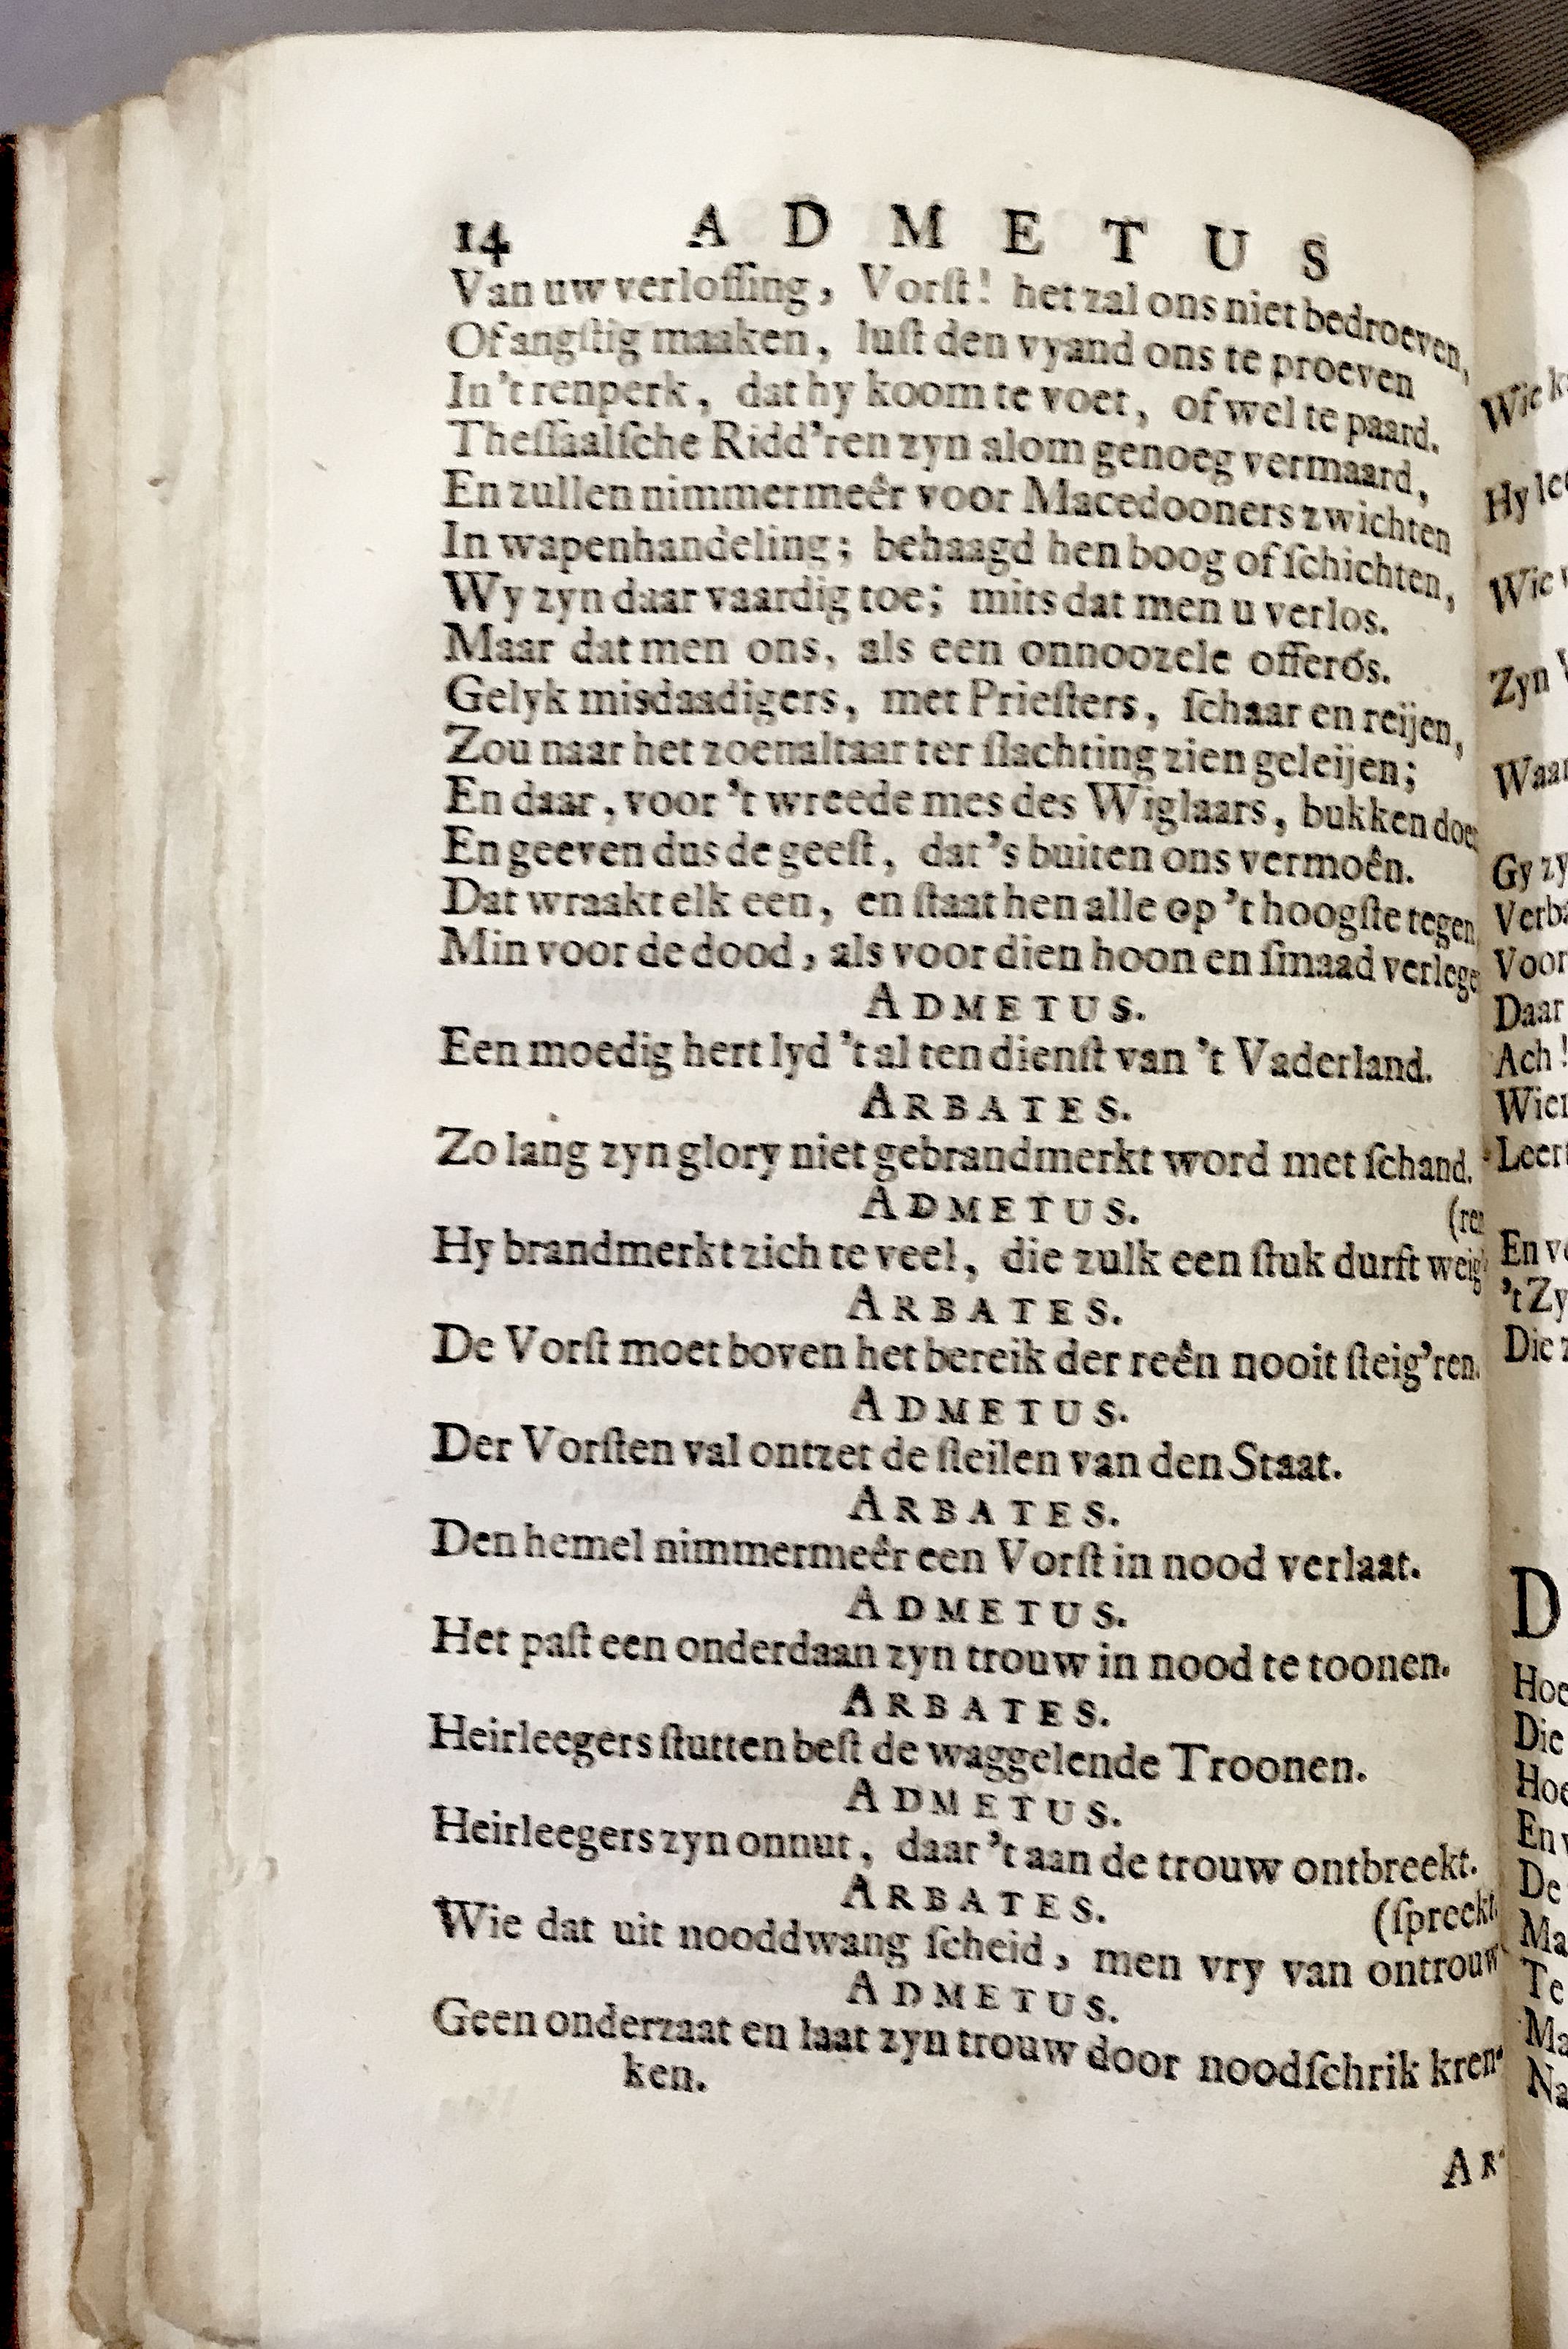 14 ADMETUS
Van uw verloſſing, Vorſt! het zal ons niet bedroeven,
Of angſtig maaken, luſt den vyand ons te proeven
In 't renperk, dat hy koom te voet, of wel te paard.
Theſſaalſche Ridd'ren zyn alom genoeg vermaard,
En zullen nimmermeêr voor Macedooners zwichten
In wapenhandeling; behaagd hen boog of ſchichten,
Wy zyn daar vaardig toe; mits dat men u verlos.
Maar dat men ons, als een onnoozele offerós.
Gelyk misdaadigers, met Prieſters, ſchaar en reijen,
Zou naar het zoenaltaar ter ſlachting zien geleijen;
En daar, voor 't wreede mes des Wiglaars, bukken doen
En geeven dus de geeſt, dat 's buiten ons vermoên.
Dat wraakt elk een, en ſtaat hen alle op 't hoogſte tegen
Min voor de dood, als voor dien hoon en ſmaad verlege
ADMETUS.
Een moedig hert lyd 't al ten dienſt van 't Vaderland.
ARBATES.
Zo lang zyn glory niet gebrandmerkt word met ſchand.
ADMETUS. (ren
Hy brandmerkt zich te veel, die zulk een ſtuk durft weig'
ARBATES.
De Vorſt moet boven het bereik der reên nooit ſteig'ren.
ADMETUS.
Der Vorſten val ontzet de ſteilen van den Staat.
ARBATES.
Den hemel nimmermeêr een Vorſt in nood verlaat.
ADMETUS.
Het paſt een onderdaan zyn trouw in nood te toonen.
ARBATES.
Heirleegers ſtutten beſt de waggelende Troonen.
ADMETUS.
Heirleegers zyn onnut, daar 't aan de trouw ontbreekt.
ARBATES. (ſpreekt.
Wie dat uit nooddwang ſcheid, men vry van ontrouw
ADMETUS.
Geen onderzaat en laat zyn trouw door noodſchrik kren-
ken.
AR-
Wie
Hy
Wie
Zyn
Waar
Gy zy
Verba
Voor
Daar
Ach!
Wien
Leert
En ve
't Zy
Die z
D
Hoe
Die
Hoe
En
De
Ma
Te
Ma
Na